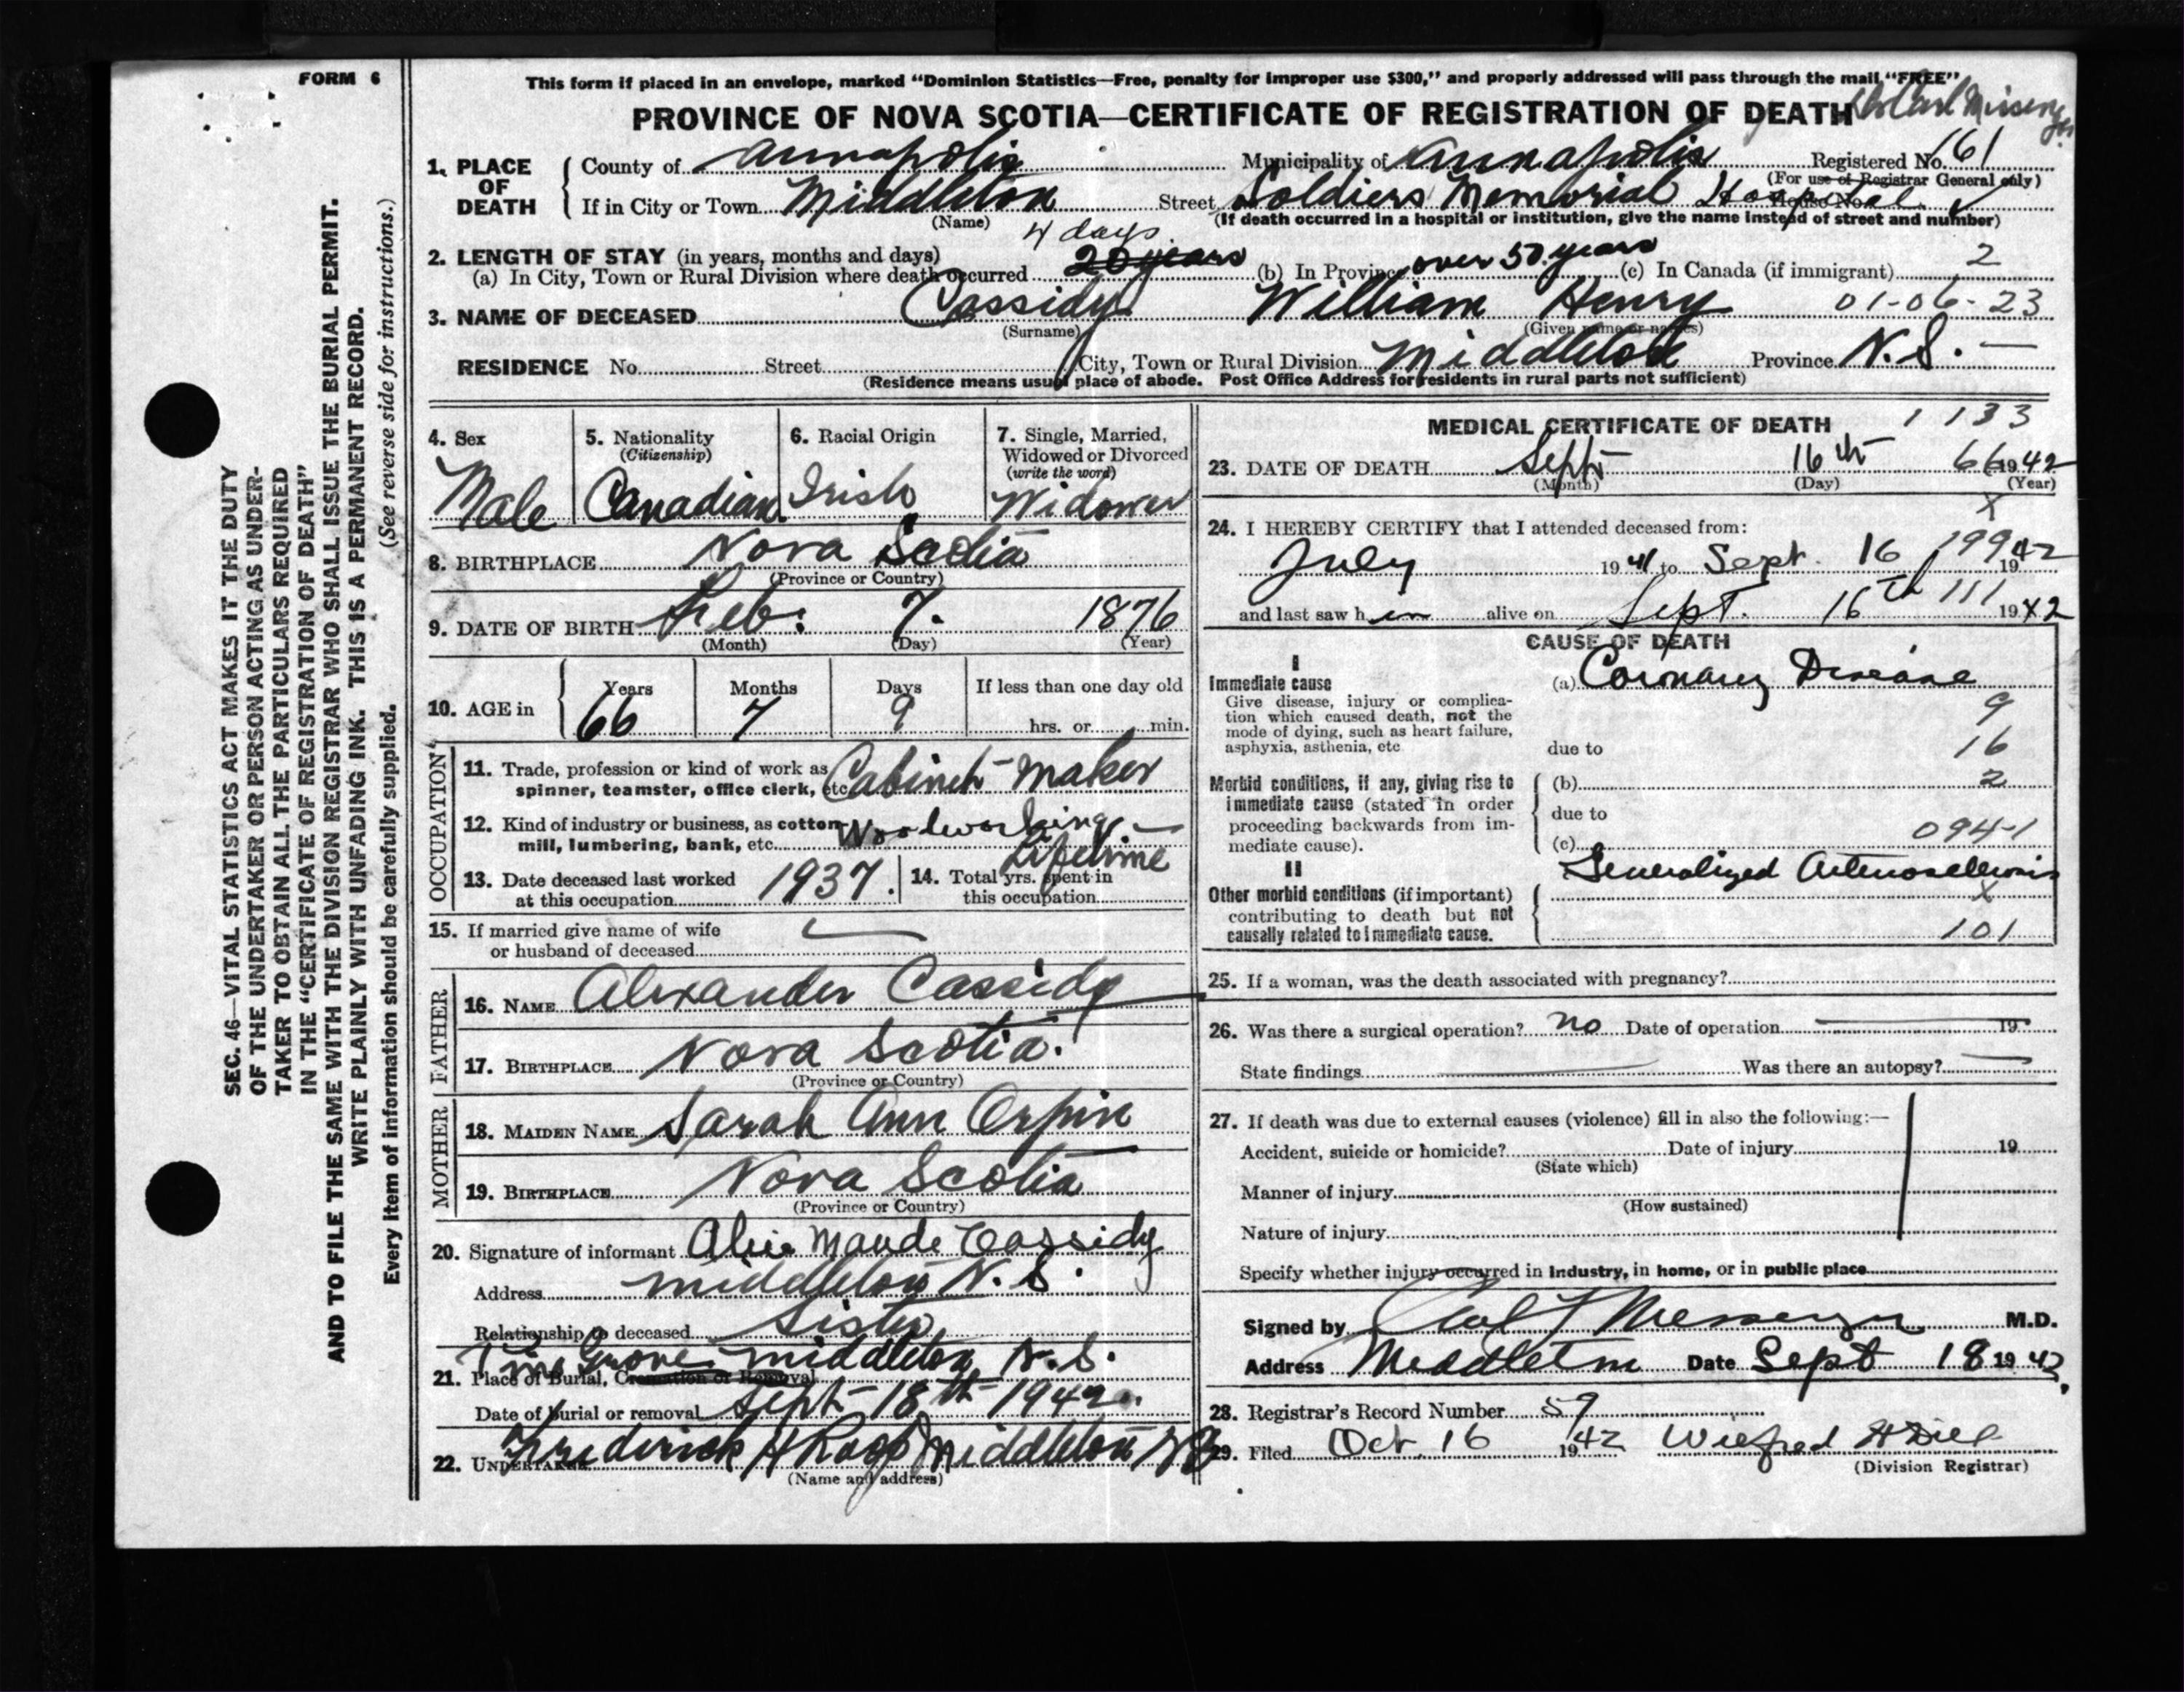 FORM 6
This form if placed in an envelope, marked "Dominion Statistics—Free, penalty for improper use $300," and properly addressed will pass through the mail "FREE"
PROVINCE OF NOVA SCOTIA—CERTIFICATE OF REGISTRATION OF DEATH
1. PLACE OF DEATH County of Annapolis Municipality of Annapolis Registered No. 161
(For use of Registrar General only)
If in City or Town Middleton Street Soldiers Memorial Hospital House No.
(Name) (If death occurred in a hospital or institution, give the name instead of street and number)
2. LENGTH OF STAY (in years, months and days) 4 days
(a) In City, Town or Rural Division where death occurred 20 years (b) In Province over 50 years (c) In Canada (if immigrant) 2
3. NAME OF DECEASED Cassidy William Henry 01-06-23
(Surname) (Given name or names)
RESIDENCE No. Street City, Town or Rural Division Middleton Province N.S. —
(Residence means usual place of abode. Post Office Address for residents in rural parts not sufficient)
4. Sex 5. Nationality (Citizenship) 6. Racial Origin 7. Single, Married, Widowed or Divorced (write the word)
Male Canadian Irish Widower
8. BIRTHPLACE Nova Scotia
(Province or Country)
9. DATE OF BIRTH Feb. 7. 1876
(Month) (Day) (Year)
10. AGE in Years Months Days If less than one day old
66 7 9 hrs. or min.
OCCUPATION
11. Trade, profession or kind of work as spinner, teamster, office clerk, etc. Cabinet-Maker
12. Kind of industry or business, as cotton mill, lumbering, bank, etc. Woodworking —
13. Date deceased last worked at this occupation 1937. 14. Total yrs. spent in this occupation Lifetime
15. If married give name of wife or husband of deceased
FATHER
16. NAME Alexander Cassidy
17. BIRTHPLACE Nova Scotia.
(Province or Country)
MOTHER
18. MAIDEN NAME Sarah Ann Orpin
19. BIRTHPLACE Nova Scotia
(Province or Country)
20. Signature of informant Alice Maude Cassidy
Address Middleton N.S.
Relationship to deceased Sister
Pine Grove Middleton N.S.
21. Place of Burial, Cremation or Removal
Date of burial or removal Sept 18th 1942.
22. UNDERTAKER Frederick H Roop Middleton NS
(Name and address)
MEDICAL CERTIFICATE OF DEATH 1133
23. DATE OF DEATH Sept 16th 66 1942
(Month) (Day) (Year)
X
24. I HEREBY CERTIFY that I attended deceased from:
July 1941 to Sept. 16 199 1942
and last saw him alive on Sept. 16th 111 1942
CAUSE OF DEATH
I
Immediate cause (a) Coronary Disease
Give disease, injury or complication which caused death, not the mode of dying, such as heart failure, asphyxia, asthenia, etc
9
due to 16
Morbid conditions, if any, giving rise to immediate cause (stated in order proceeding backwards from immediate cause).
(b) 2
due to
(c) 094-1
II
Generalized Arteriosclerosis
Other morbid conditions (if important) contributing to death but not causally related to immediate cause.
X
101
25. If a woman, was the death associated with pregnancy?
26. Was there a surgical operation? no Date of operation 19
State findings Was there an autopsy?
27. If death was due to external causes (violence) fill in also the following:—
Accident, suicide or homicide? Date of injury 19
(State which)
Manner of injury
(How sustained)
Nature of injury
Specify whether injury occurred in industry, in home, or in public place
Signed by Carl T Messenger M.D.
Address Middleton Date Sept 18 1942
28. Registrar's Record Number 59
29. Filed Oct 16 1942 Wilfred
(Division Registrar)
SEC. 46—VITAL STATISTICS ACT MAKES IT THE DUTY
OF THE UNDERTAKER OR PERSON ACTING AS UNDER-
TAKER TO OBTAIN ALL THE PARTICULARS REQUIRED
IN THE "CERTIFICATE OF REGISTRATION OF DEATH"
AND TO FILE THE SAME WITH THE DIVISION REGISTRAR WHO SHALL ISSUE THE BURIAL PERMIT.
WRITE PLAINLY WITH UNFADING INK. THIS IS A PERMANENT RECORD.
Every item of information should be carefully supplied. (See reverse side for instructions.)